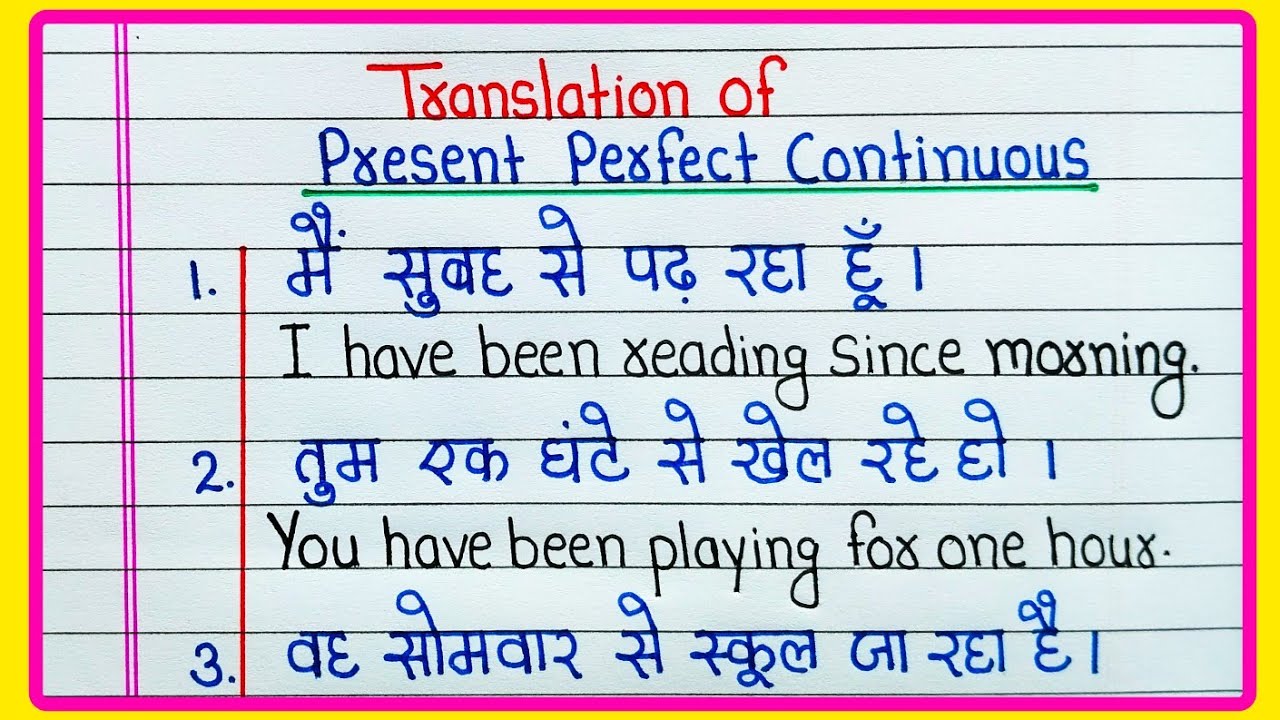 Translation of
Present Perfect Continuous
1. मैं सुबह से पढ़ रहा हूँ।
I have been reading since morning.
2. तुम एक घंटे से खेल रहे हो।
You have been playing for one hour.
3. वह सोमवार से स्कूल जा रहा है।